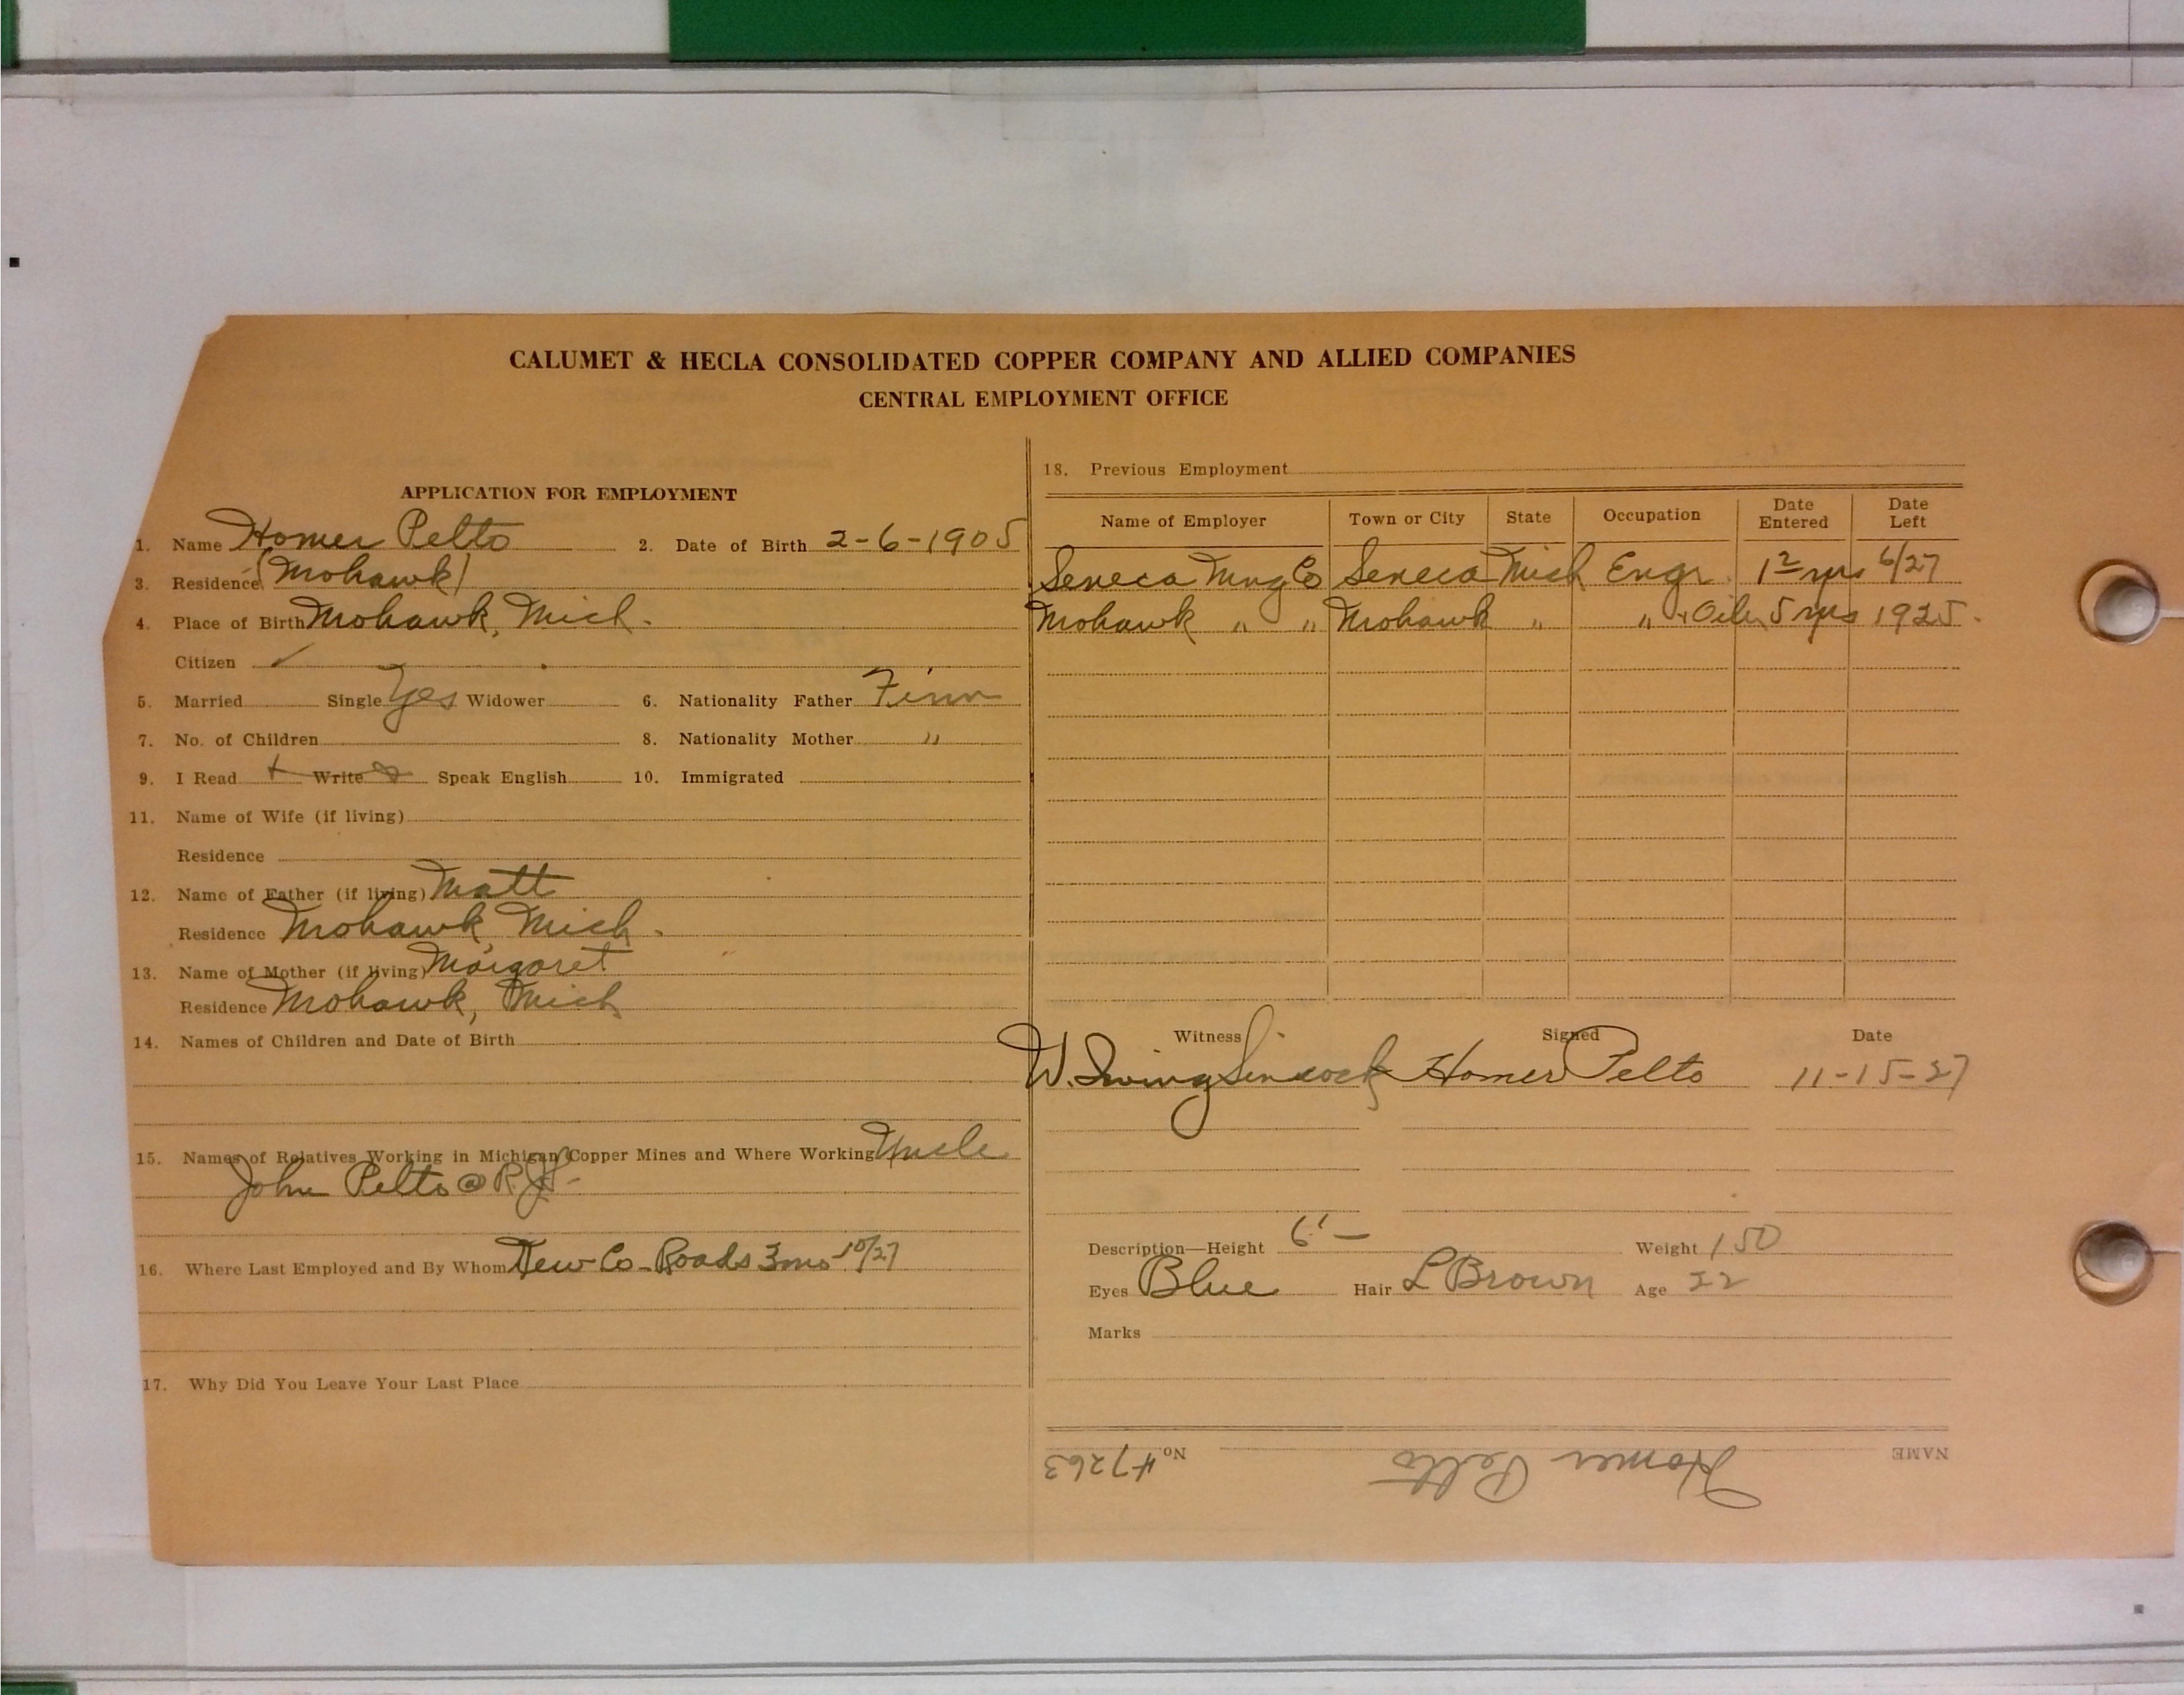 CALUMET & HECLA CONSOLIDATED COPPER COMPANY AND ALLIED COMPANIES
CENTRAL EMPLOYMENT OFFICE
APPLICATION FOR EMPLOYMENT
1. Name Homer Pelto 2. Date of Birth 2-6-1905
3. Residence (Mohawk)
4. Place of Birth Mohawk, Mich.
Citizen ✓
5. Married Single Yes Widower 6. Nationality Father Finn
7. No. of Children 8. Nationality Mother "
9. I Read Write Speak English 10. Immigrated
11. Name of Wife (if living)
Residence
12. Name of Father (if living) Matt
Residence Mohawk, Mich.
13. Name of Mother (if living) Margaret
Residence Mohawk, Mich
14. Names of Children and Date of Birth
15. Names of Relatives Working in Michigan Copper Mines and Where Working Uncle
John Pelto @
16. Where Last Employed and By Whom Kew Co. Roads 3 mos - 10/27
17. Why Did You Leave Your Last Place
18. Previous Employment
Name of Employer Town or City State Occupation Date Entered Date Left
Seneca Mng Co Seneca Mich Engr. 1 2 yrs 6/27
Mohawk " " Mohawk " " " Oiler 5 yrs 1925.
Witness Signed Date
W. Irving Sincock Homer Pelto 11-15-27
Description—Height 6' — Weight 150
Eyes Blue Hair L Brown Age 22
Marks
NAME Homer Pelto No. #7263